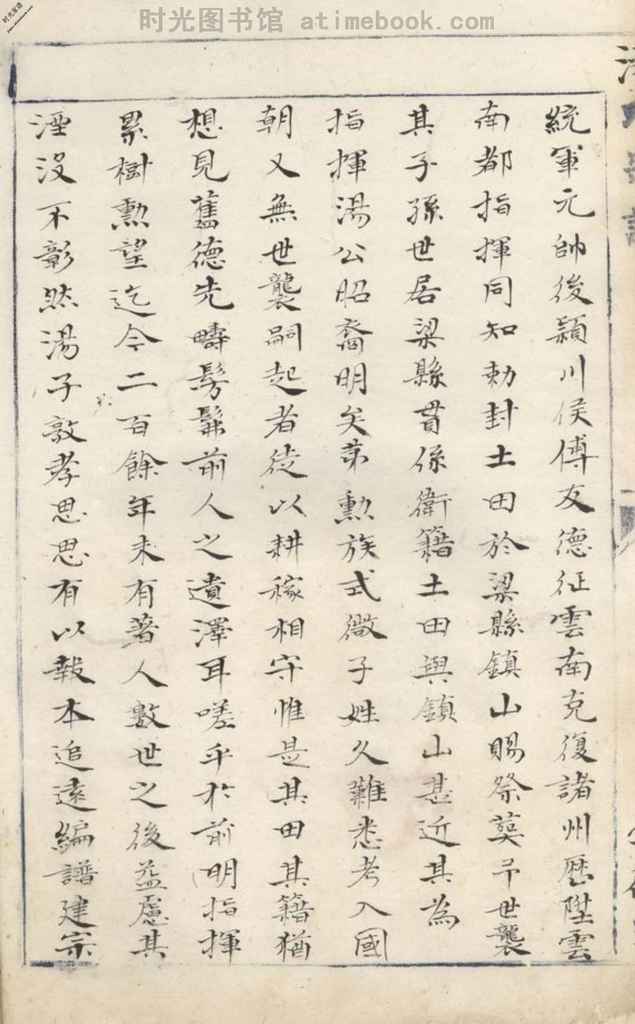 时光图书馆 atimebook.com
时光军语
統軍元帥後潁川侯傅友德征雲南克復諸州歷陞雲
南都指揮同知勅封土田於梁縣鎮山賜祭奠予世襲
其子孫世居梁縣貫係衛籍土田與鎮山甚近其為
指揮湯公昭裔明矣第勲族式微子姓久難悉考入國
朝又無世襲嗣起者徒以耕稼相守惟是其田其籍猶
想見舊德先疇髣髴前人之遺澤耳嗟乎於前明指揮
累樹勲望迄今二百餘年未有著人數世之後益慮其
湮没不彰然湯子敦孝思思有以報本追遠編譜建宗